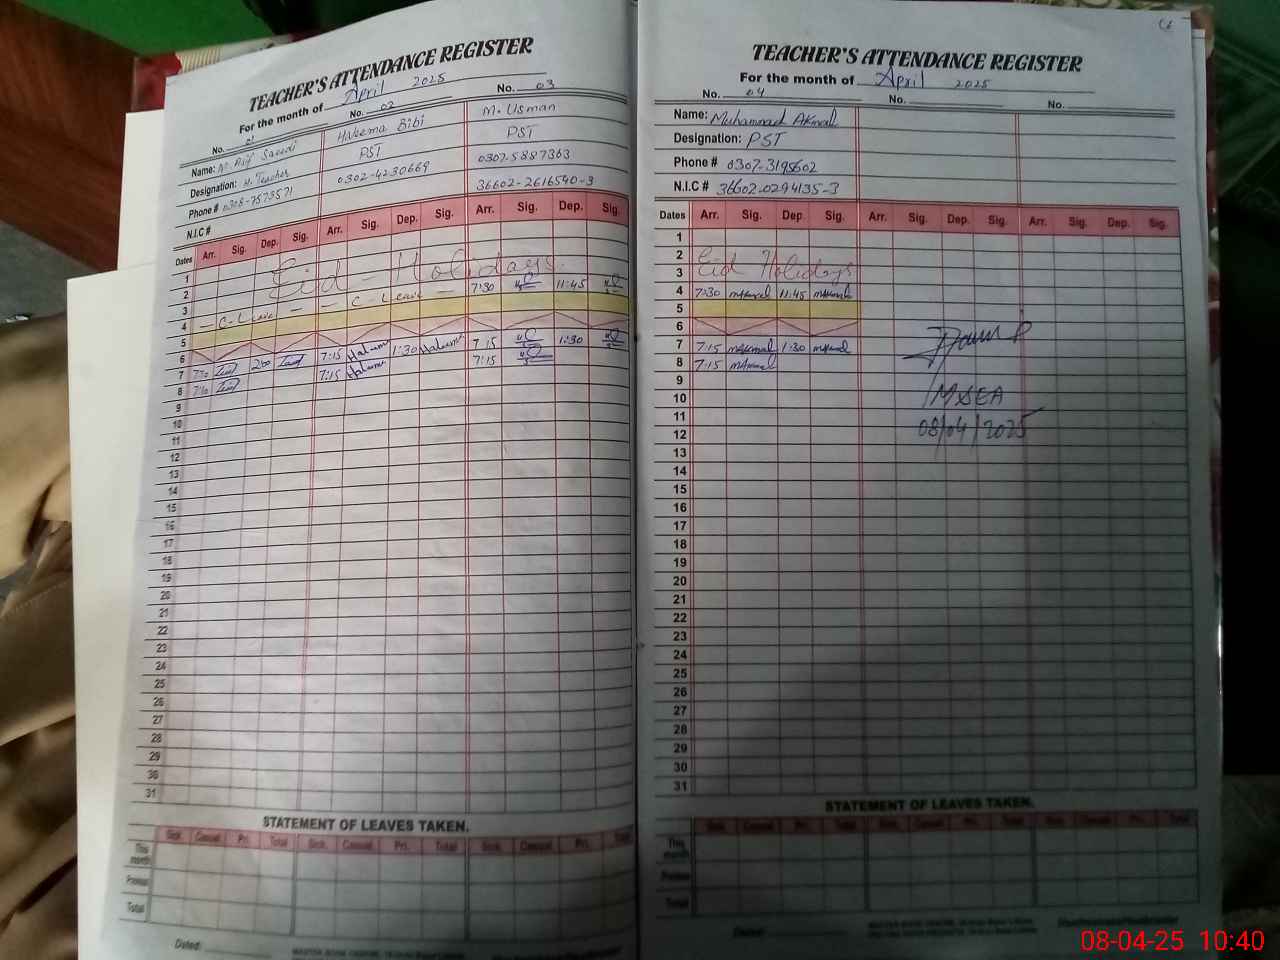 TEACHER'S ATTENDANCE REGISTER
For the month of April 2025
No. 01 No. 02 No. 03
Name: M. Asif Saeedi Haleema Bibi M. Usman
Designation: H. Teacher PST PST
Phone # 0308-7573571 0302-4230669 0307-5887363
N.I.C # 36602-2616540-3
Dates Arr. Sig. Dep. Sig. Arr. Sig. Dep. Sig. Arr. Sig. Dep. Sig.
1
2 Eid - Holidays.
3
4 - C-Leave - - C-Leave - 7:30 11:45
5
6
7 2:00 7:15 Haleema 1:30 Haleema 7:15 1:30
8 7:15 Haleema 7:15
9
10
11
12
13
14
15
16
17
18
19
20
21
22
23
24
25
26
27
28
29
30
31
STATEMENT OF LEAVES TAKEN.
Sick. Casual Pri. Total Sick. Casual Pri. Total Sick. Casual Pri. Total
This month
Previous
Total
Dated:
TEACHER'S ATTENDANCE REGISTER
For the month of April 2025
No. 04 No. No.
Name: Muhammad Akmal
Designation: PST
Phone # 0307-3195602
N.I.C # 36602-0294135-3
Dates Arr. Sig. Dep Sig. Arr. Sig. Dep. Sig. Arr. Sig. Dep. Sig.
1
2 Eid Holidays
3
4 7:30 mAkmal 11:45 mAkmal
5
6
7 7:15 mAkmal 1:30 mAkmal
8 7:15 mAkmal
9
10 MSEA
11
12 08/04/2025
13
14
15
16
17
18
19
20
21
22
23
24
25
26
27
28
29
30
31
STATEMENT OF LEAVES TAKEN.
Sick. Casual Pri. Total Sick. Casual Pri. Total Sick. Casual Pri. Total
This month
Previous
Total
Dated:
08-04-25 10:40